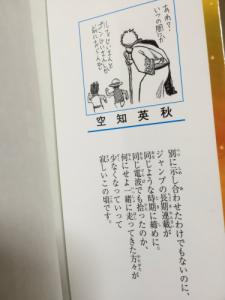 あれ?
いつの間に
空知英秋
別に示し合わせたわけでもないのに、
ジャンプの長期連載が
同じような時期に締めに。
同じ電波でも拾ったのか、
何にせよ一緒に走ってきた方々が
少なくなっていって
寂しいこの頃です。